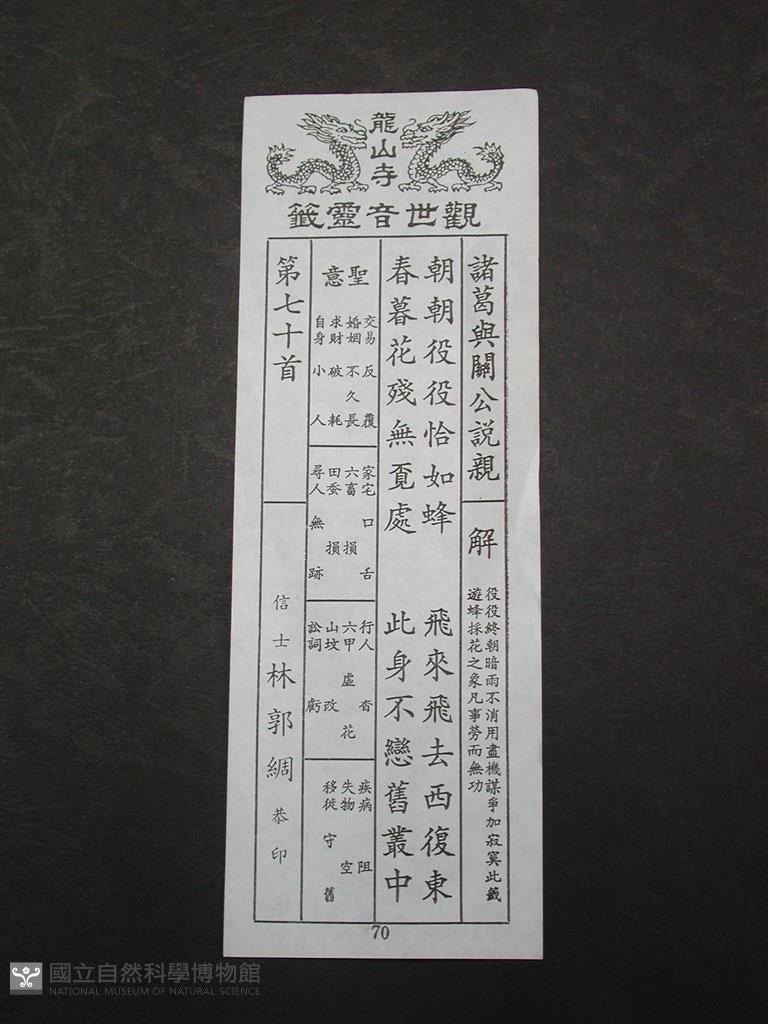 龍山寺
觀世音靈籤
諸葛與關公說親
解
役役終朝暗雨不消用盡機謀爭加寂寞此籤
遊蜂採花之象凡事勞而無功
朝朝役役恰如蜂 飛來飛去西復東
春暮花殘無覓處 此身不戀舊叢中
聖意
交易 反覆
婚姻 不久長
求財 破耗
自身 小人
家宅 口舌
六畜 損
田蚕 損
尋人 無跡
行人 杳
六甲 虛花
山坟 改
訟詞 虧
疾病 阻
失物 空
移徙 守舊
第七十首
信士林郭綢恭印
70
國立自然科學博物館
NATIONAL MUSEUM OF NATURAL SCIENCE